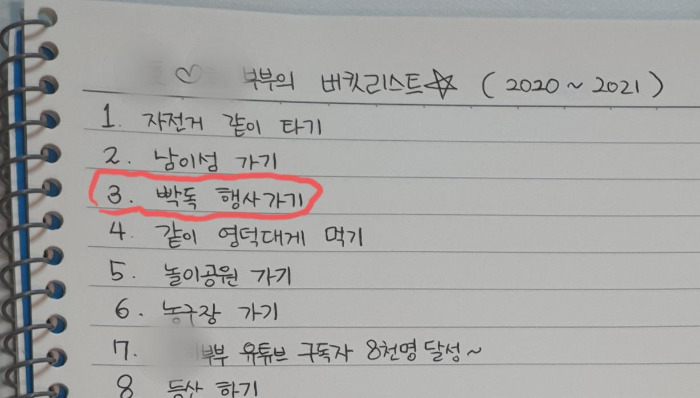 ♡ 부부의 버킷리스트☆ (2020~2021)
1. 자전거 같이 타기
2. 남이섬 가기
3. 빡독 행사가기
4. 같이 영덕대게 먹기
5. 놀이공원 가기
6. 농구장 가기
7. 부부 유튜브 구독자 8천명 달성~
8 등산 하기